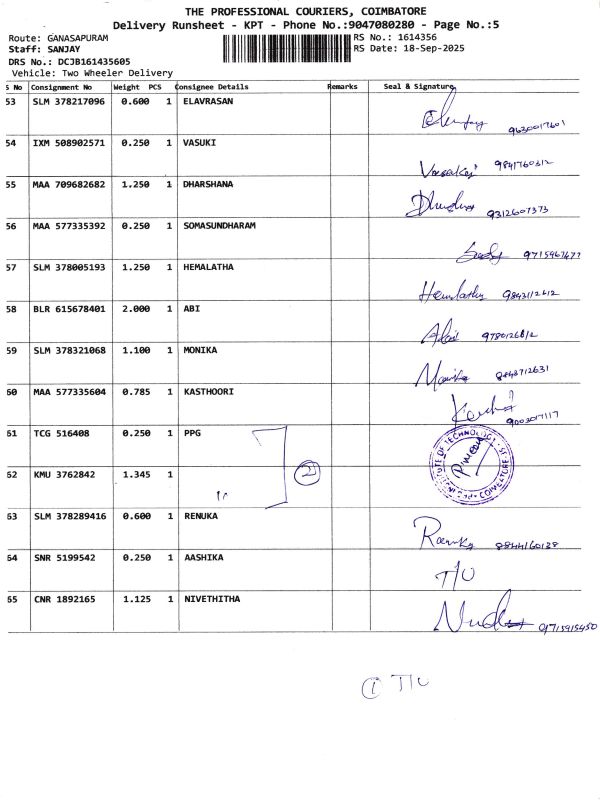 THE PROFESSIONAL COURIERS, COIMBATORE
Delivery Runsheet - KPT - Phone No.:9047080280 - Page No.:5
Route: GANASAPURAM
RS No.: 1614356
Staff: SANJAY
RS Date: 18-Sep-2025
DRS No.: DCJB161435605
Vehicle: Two Wheeler Delivery
S No Consignment No Weight PCS Consignee Details Remarks Seal & Signature
53 SLM 378217096 0.600 1 ELAVRASAN
9630017601
54 IXM 508902571 0.250 1 VASUKI
Vasuki 9841760312
55 MAA 709682682 1.250 1 DHARSHANA
9312607373
56 MAA 577335392 0.250 1 SOMASUNDHARAM
9715967477
57 SLM 378005193 1.250 1 HEMALATHA
Hemlatha 9843112612
58 BLR 615678401 2.000 1 ABI
Abi 9780126812
59 SLM 378321068 1.100 1 MONIKA
Monika 8848712631
60 MAA 577335604 0.785 1 KASTHOORI
9003017117
61 TCG 516408 0.250 1 PPG
62 KMU 3762842 1.345 1
2
63 SLM 378289416 0.600 1 RENUKA
8844160138
64 SNR 5199542 0.250 1 AASHIKA
T/U
65 CNR 1892165 1.125 1 NIVETHITHA
9715915450
1 T/U